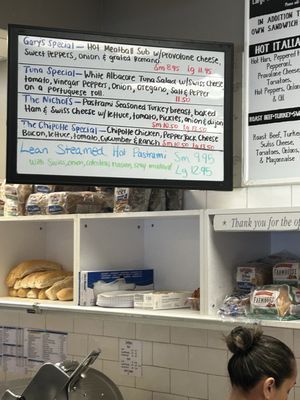 Gary's Special - Hot Meatball Sub w/provolone Cheese,
Sweet Peppers, onion & grated Romano
Sm 8.95 Lg 11.95
Tuna Special - White Albacore Tuna Salad w/Swiss Cheese
tomato, Vinegar Peppers, onion, oregano, Salt & Pepper
on a Portuguese Roll 11.50
The Nichols - Pastrami Seasoned Turkey breast, baked
Ham & Swiss Cheese w/ lettuce, Tomato, Pickles, onion & dijon
Sm 10.50 Lg 12.50
The Chipotle Special - Chipotle Chicken, Pepper Jack Cheese
Bacon, lettuce, tomato, Cucumber & Ranch Sm 10.50 Lg 12.50
Lean Steamed Hot Pastrami Sm 9.95
with Swiss, onion, Lg 12.95
IN ADDITION T
OWN SANDWICH
HOT ITALI
Hot Ham, Peppered H
Pepperoni,
Provolone Cheese,
Tomatoes,
Hot Peppers, Onions
& Oil
ROAST BEEF-TURKEY-SWISS
Roast Beef, Turkey,
Swiss Cheese,
Tomatoes, Onions,
& Mayonnaise
Thank you for the o
FARMHOUSE